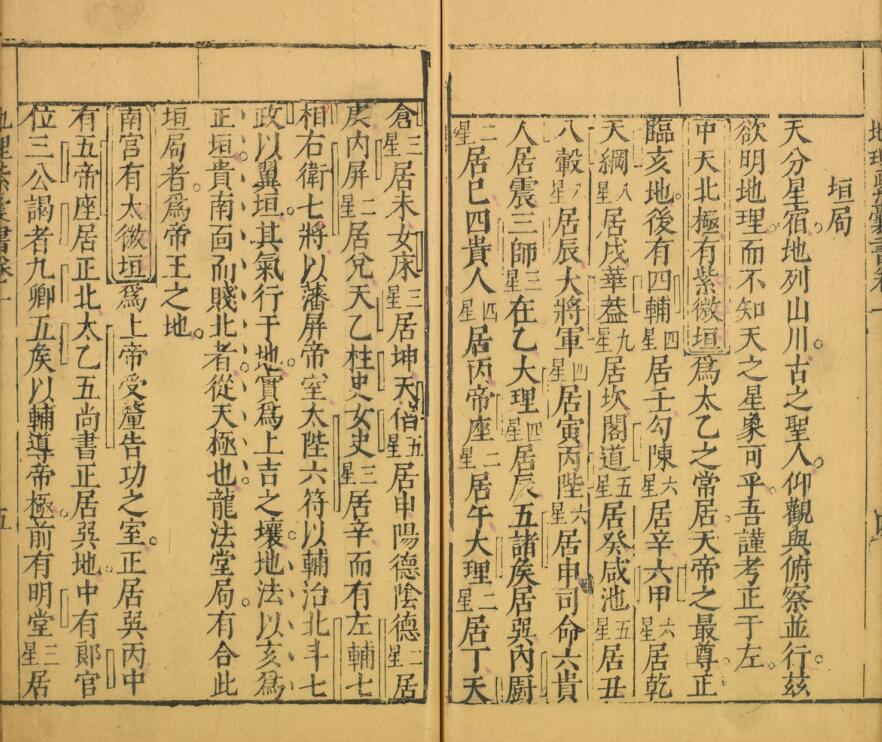 垣局
天分星宿地列山川古之聖人仰觀與俯察並行茲
欲明地理而不知天之星象可乎吾謹考正于左
中天北極有紫微垣爲太乙之常居天帝之最尊正
臨亥地後有四輔四星居壬勾陳六星居辛六甲六星居乾
天綱八星居戌華葢九星居坎閣道五星居癸咸池五星居丑
八轂八星居辰大將軍四星居寅丙陛六星居申司命六貴
人居震三師三星在乙大理四星居辰五諸矦居巽內厨
二星居巳四貴人四星居丙帝座二星居午大理二星居丁天
倉三星居未女床三星居坤天倍五星居申陽德陰德二星居
庚內屏二星居兌天乙柱史女史三星居辛而有左輔七
相右衛七將以藩屏帝室太陛六符以輔治北斗七
政以翼垣其氣行于地實爲上吉之壤地法以亥爲
正垣貴南面而賤北者從天極也龍法堂局有合此
垣局者爲帝王之地
南宮有太微垣爲上帝受釐告功之室正居巽丙中
有五帝座居正北太乙五尚書正居巽地中有郎官
位三公謁者九卿五矦以輔導帝極前有明堂三星居
五